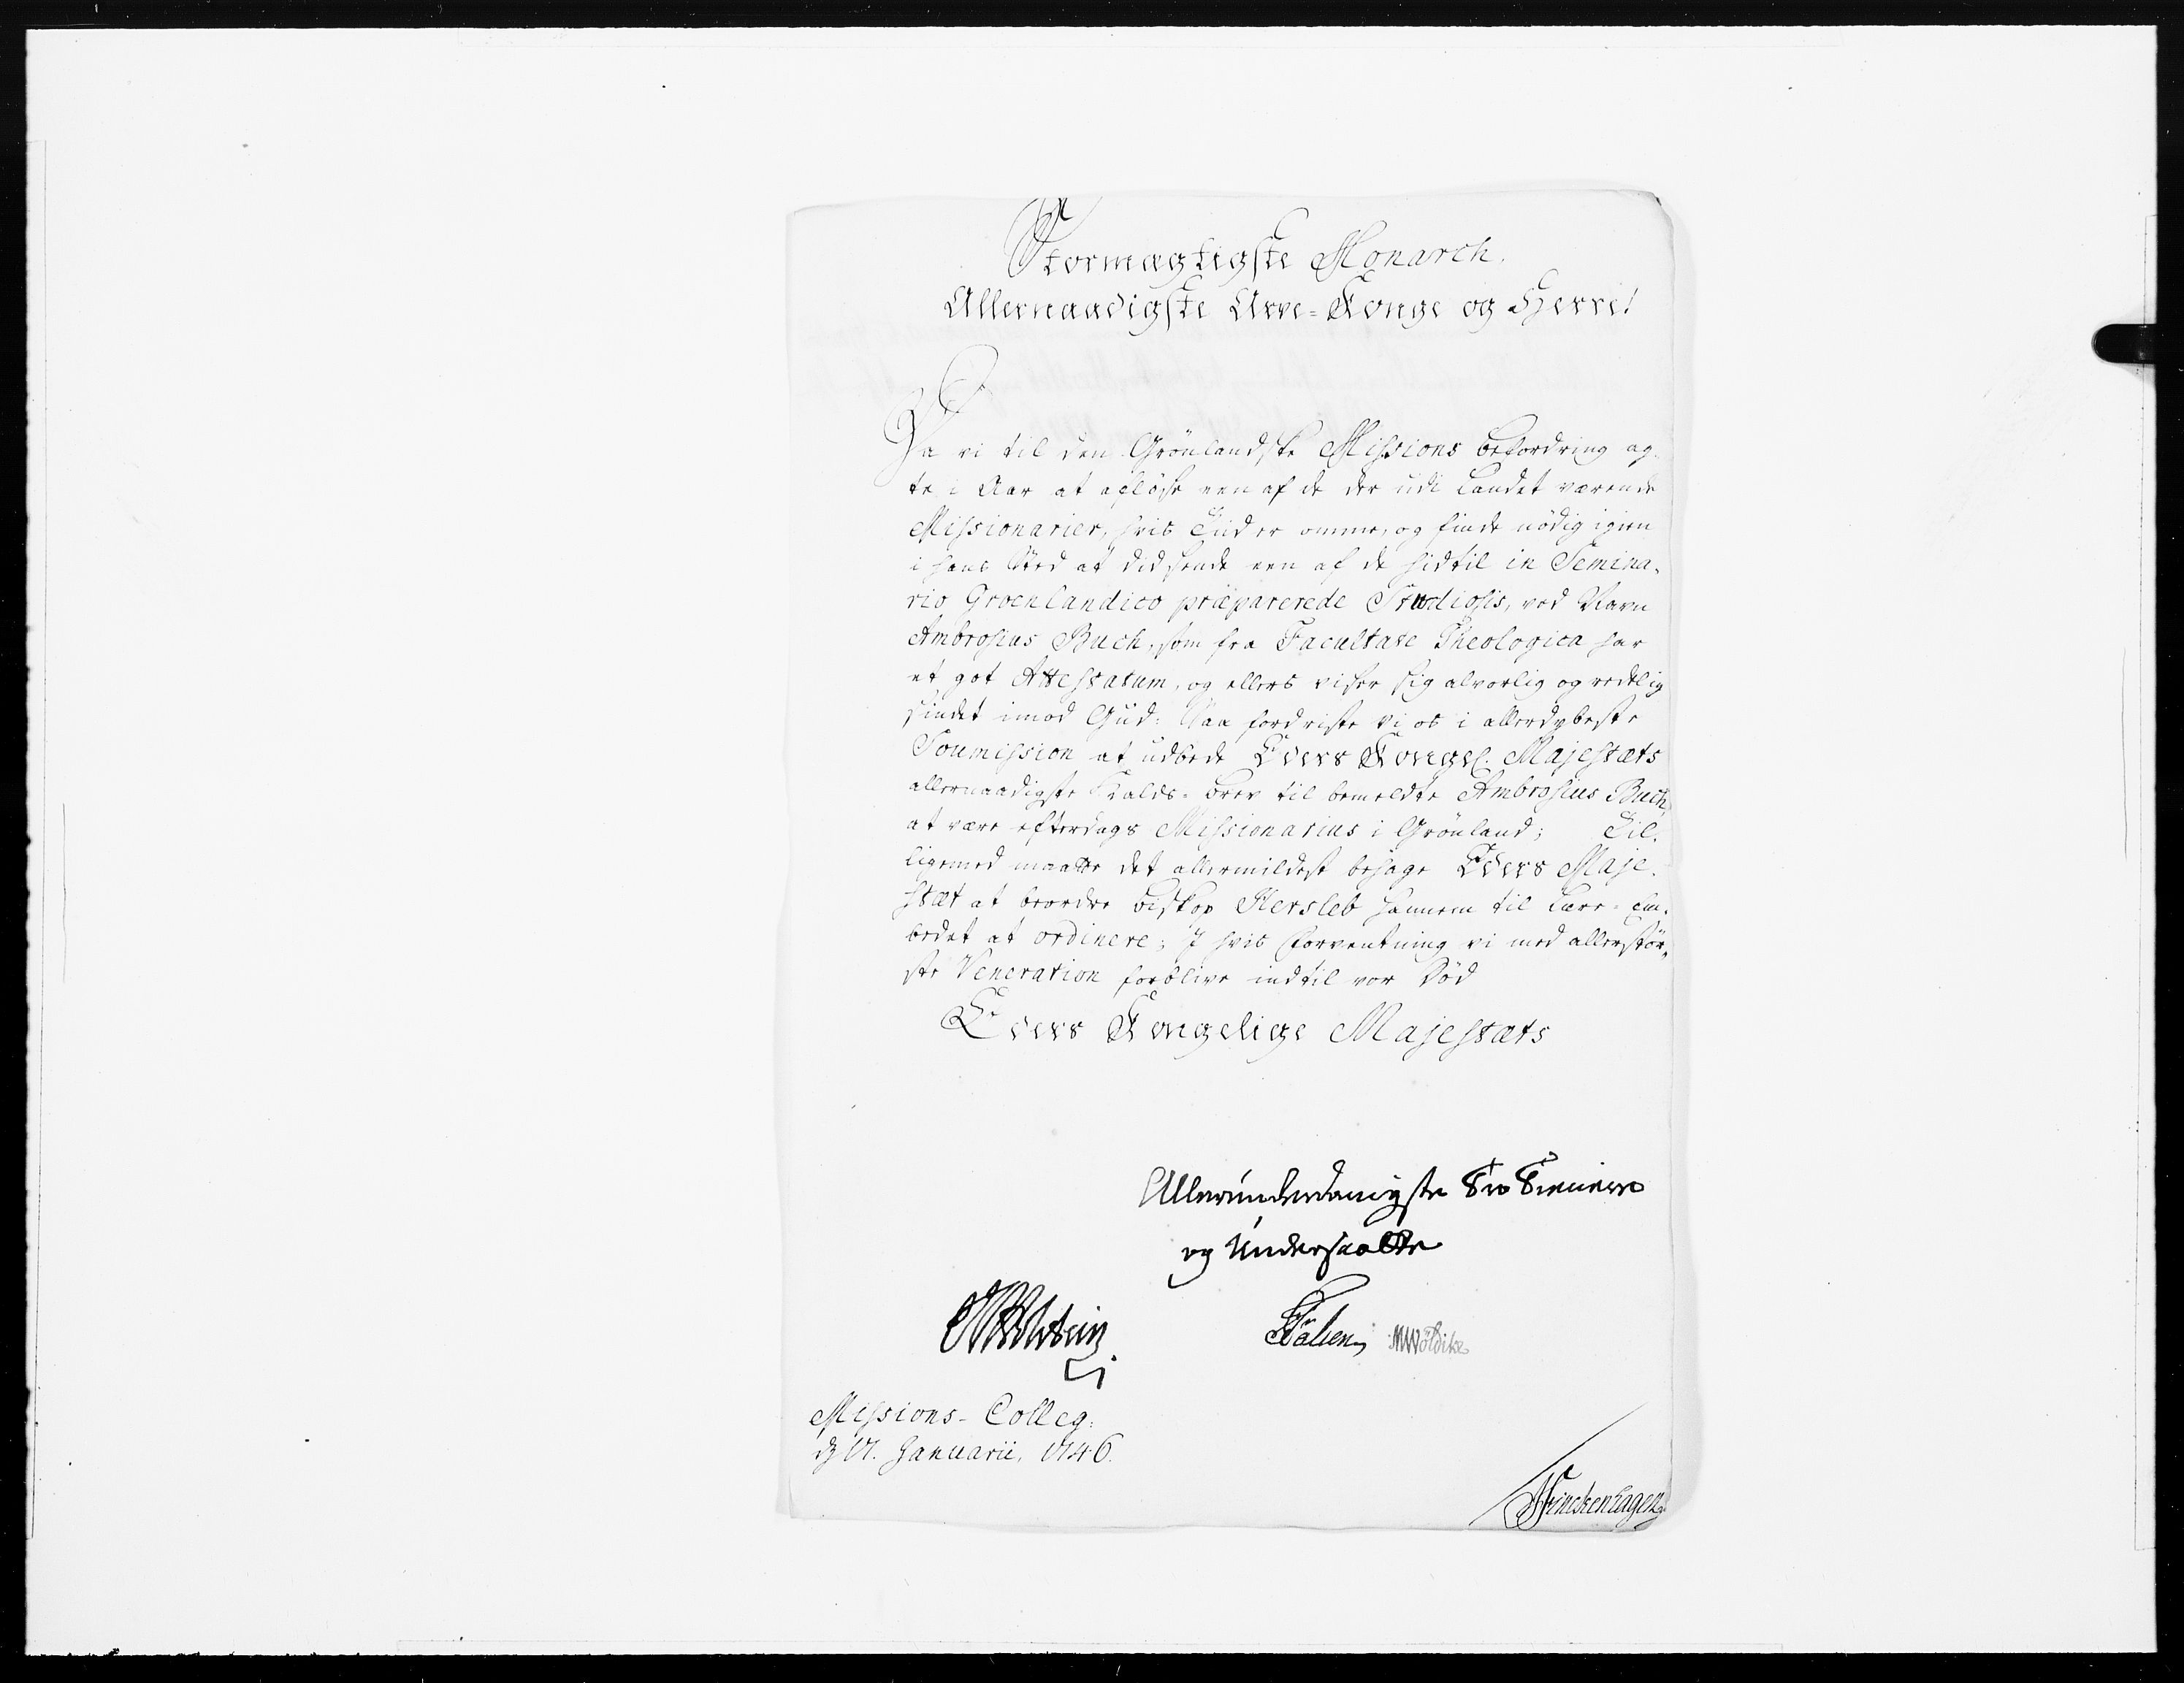 Stormægtigste Monarch.
Allernaadigste Arve-Konge og Herre!
Da vi til den Grönlandske Missions befordring ag-
te i Aar at aflöse een af de der udi Landet værende
Missionarier, hvis Tid er omme, og finde nödig igien
i hans Sted at did sende een af de hidtil in Semina-
rio Groenlandico præparerede Studiosis, ved Navn
Ambrosius Buch, som fra Facultate Theologica har
et got Attestatum, og ellers viser sig alvorlig og redelig
sindet imod Gud: Saa fordriste vi os i allerdybeste
Soumission at udbede Eders Kongel. Majestæts
allernaadigste Kalds-Brev til bemeldte Ambrosius Buch,
at være efterdags Missionarius i Grönland; Til-
ligemed maatte det allermildest behage Eders Maje-
stæt at beordre Biskop Hersleb hannem til Lære-Em-
bedet at ordinere; I hvis Forventning vi med allerstör-
ste Veneration forblive indtil vor Död
Eders Kongelige Majestæts
Allerunderdanigste Tro Tienere
og Undersaatte
JLHolstein
Falsen MWöldike
Missions-Colleg:
d 17. Januarii, 1746.
Finckenhagen